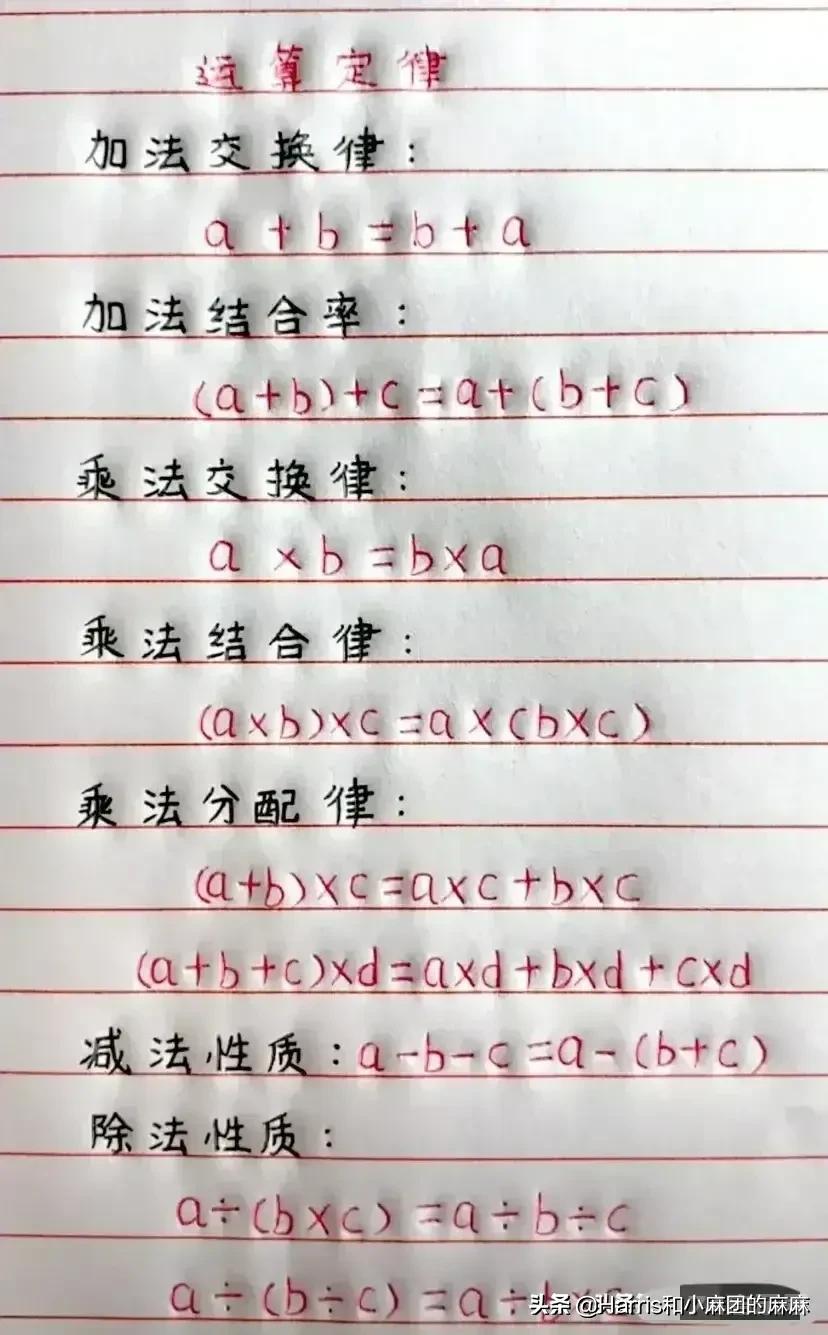 运算定律
加法交换律:
a+b=b+a
加法结合率:
(a+b)+c=a+(b+c)
乘法交换律:
a×b=b×a
乘法结合律:
(a×b)×c=a×(b×c)
乘法分配律:
(a+b)×c=a×c+b×c
(a+b+c)×d=a×d+b×d+c×d
减法性质:a-b-c=a-(b+c)
除法性质:
a÷(b×c)=a÷b÷c
a÷(b÷c)=a÷b
头条 @Harris和小麻团的麻麻